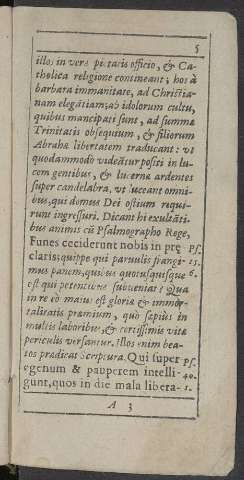 5
illos in vero pietatis officio, & Ca-
tholica religione contineant; hos à
barbara immanitate, ad Christia-
nam elegātiam; ab idolorum cultu,
quibus mancipati sunt, ad summæ
Trinitatis obsequium, & filiorum
Abrahæ libertatem traducant: vt
quodammodo videātur positi in lu-
cem gentibus, & lucernæ ardentes
super candelabra, vt luceant omni-
bus, qui domus Dei ostium requi-
runt ingressuri. Dicant hi exultāti-
bus animis cū Psalmographo Rege,
Funes ceciderunt nobis in prę Ps.
claris; quippe qui paruulis frangi- 15.
mus panem, quibus quotusquisque 6.
est qui petentibus subueniat? Qua
in re eò maius est gloriæ & immor-
talitatis præmium, quo sæpius in
multis laboribus & certissimis vitæ
periculis versantur. Illos enim bea-
tos prædicat Scriptura. Qui super Ps.
egenum & pauperem intelli- 40.
gunt, quos in die mala libera- 1.
A 3